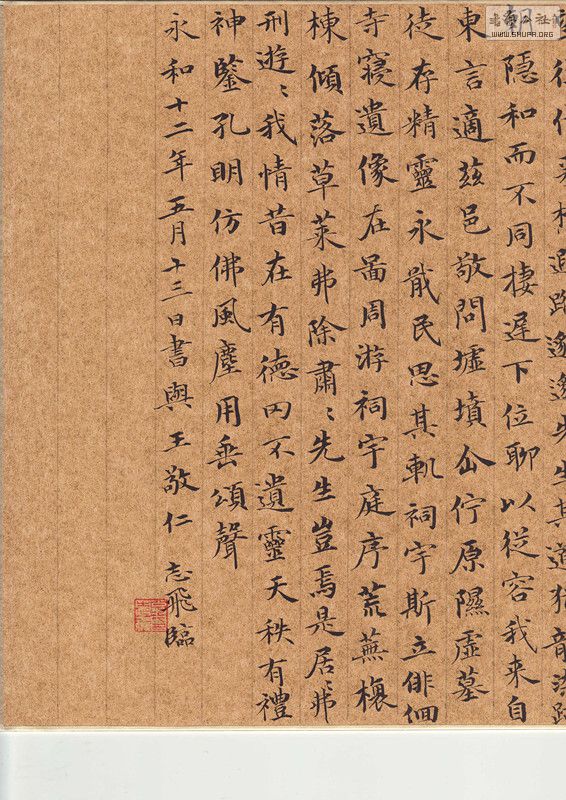 先生其道猶龍
朝隱和而不同棲遲下位聊以從容我來自
東言適茲邑敬問墟墳企佇原隰虛墓
徒存精靈永戢民思其軌祠宇斯立俳佪
寺寢遺像在啚周游祠宇庭序荒蕪榱
棟傾落草萊弗除肅〻先生豈焉是居〻弗
刑遊〻我情昔在有德罔不遺靈天秩有禮
神鑒孔明仿佛風塵用垂頌聲
永和十二年五月十三日書與王敬仁 志飛臨
公社
WWW.SHUFA.ORG